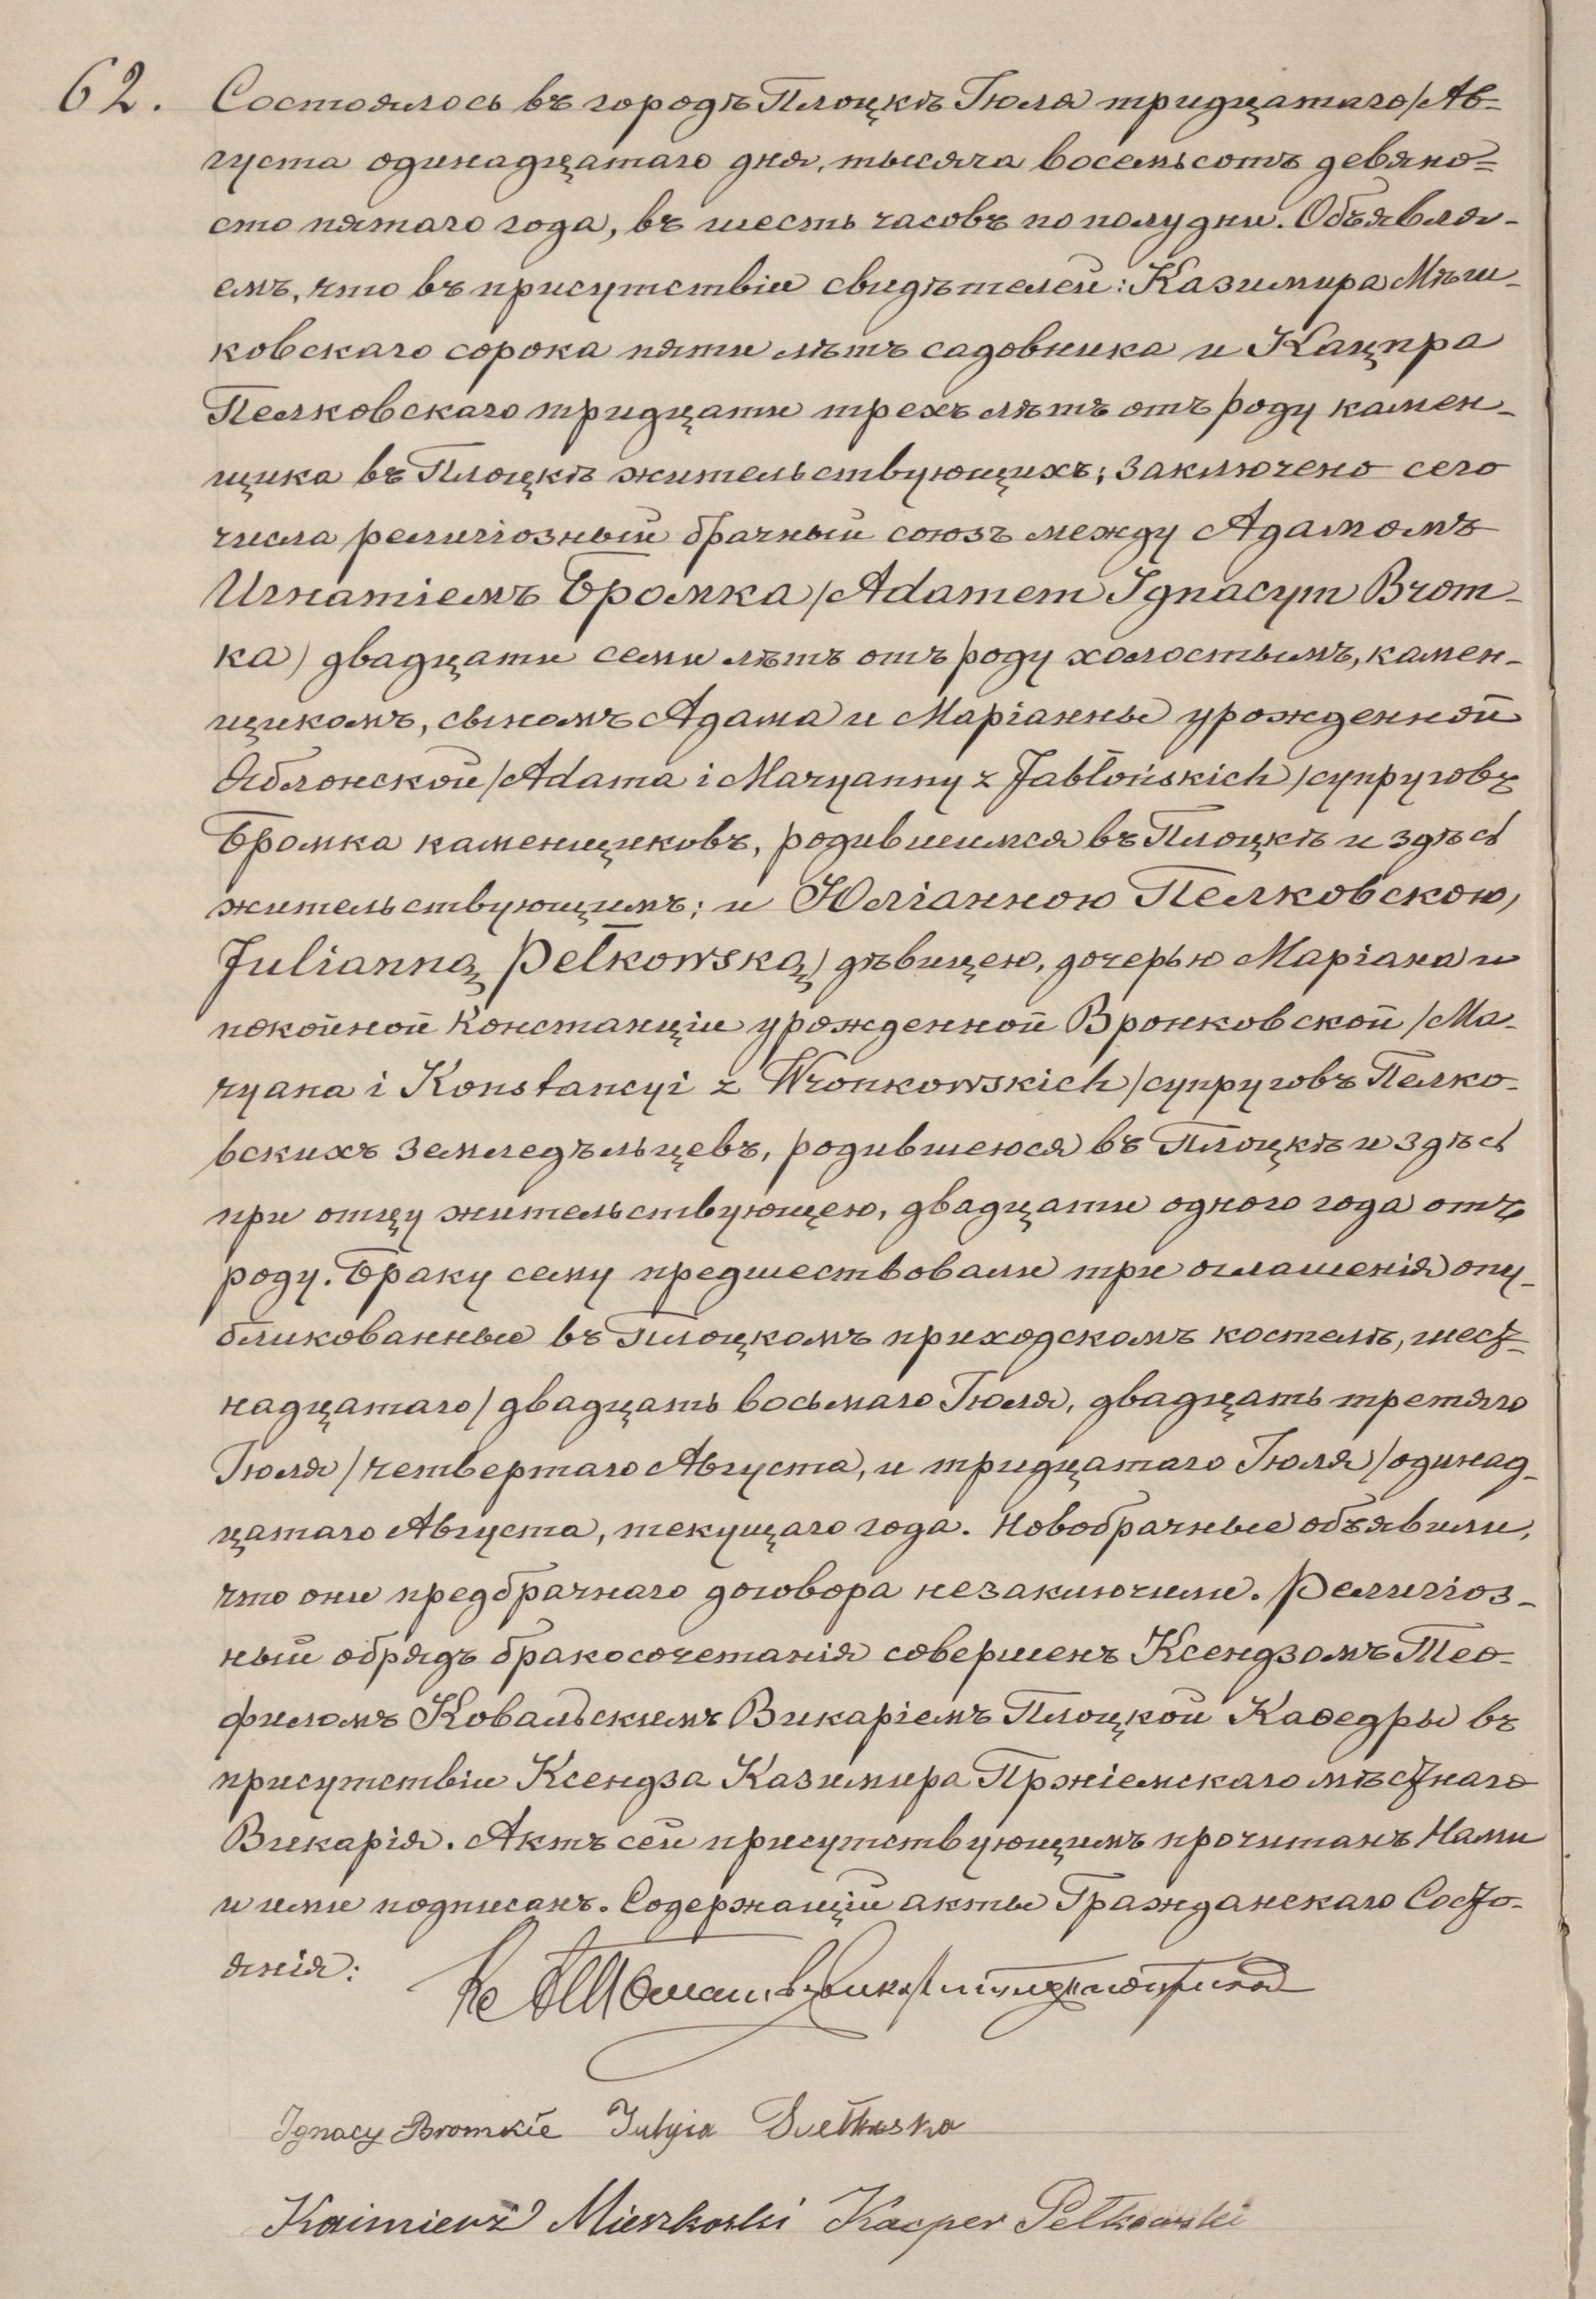 62. Состоялось въ городѣ Плоцкѣ Іюля тридцатаго/Ав-
густа одинадцатаго дня, тысяча восемьсотъ девяно=
сто пятаго года, въ шесть часовъ по полудни. Объявля-
емъ, что въ присутствіи свидѣтелей: Казимира Мѣш-
ковскаго сорока пяти лѣтъ садовника и Кацпра
Пелковскаго тридцати трехъ лѣтъ отъ роду камен-
щика въ Плоцкѣ жительствующихъ; заключено сего
числа религіозный брачный союзъ между Адамомъ
Игнатіемъ Бромка /Adamem Ignacym Brom-
ka) двадцати семи лѣтъ отъ роду холостымъ, камен-
щикомъ, сыномъ Адама и Маріанны урожденной
Яблонской /Adama i Maryanny z Jabłońskich/ супруговъ
Бромка каменщиковъ, родившимся въ Плоцкѣ и здѣсь
жительствующимъ; и Юліанною Пелковскою,
Julianną Pełkowską) дѣвицею, дочерью Маріана и
покойной Констанціи урожденной Вронковской /Ma-
ryana i Konstancyi z Wronkowskich/ супруговъ Пелко-
вскихъ земледѣльцевъ, родившеюся въ Плоцкѣ и здѣсь
при отцу жительствующею, двадцати одного года отъ
роду. Браку сему предшествовали три оглашенія опу-
бликованные въ Плоцкомъ приходскомъ костелѣ, шест-
надцатаго / двадцать восьмаго Іюля, двадцать третяго
Іюля / четвертаго Августа, и тридцатаго Іюля / одинад-
цатаго Августа, текущаго года. Новобрачные объявили,
что они предбрачнаго договора незаключили. Религіоз-
ный обрядъ бракосочетанія совершенъ Ксендзомъ Тео-
филомъ Ковальскимъ Викаріемъ Плоцкой Каѳедры въ
присутствіи Ксендза Казимира Пржіемскаго мѣстнаго
Викарія. Актъ сей присутствующимъ прочитанъ Нами
и ими подписанъ. Содержащій акты Гражданскаго Состо-
янія:
Ignacy Bromkie Julyia
Kaimierz Mieszkoski Kacper Pełkowski